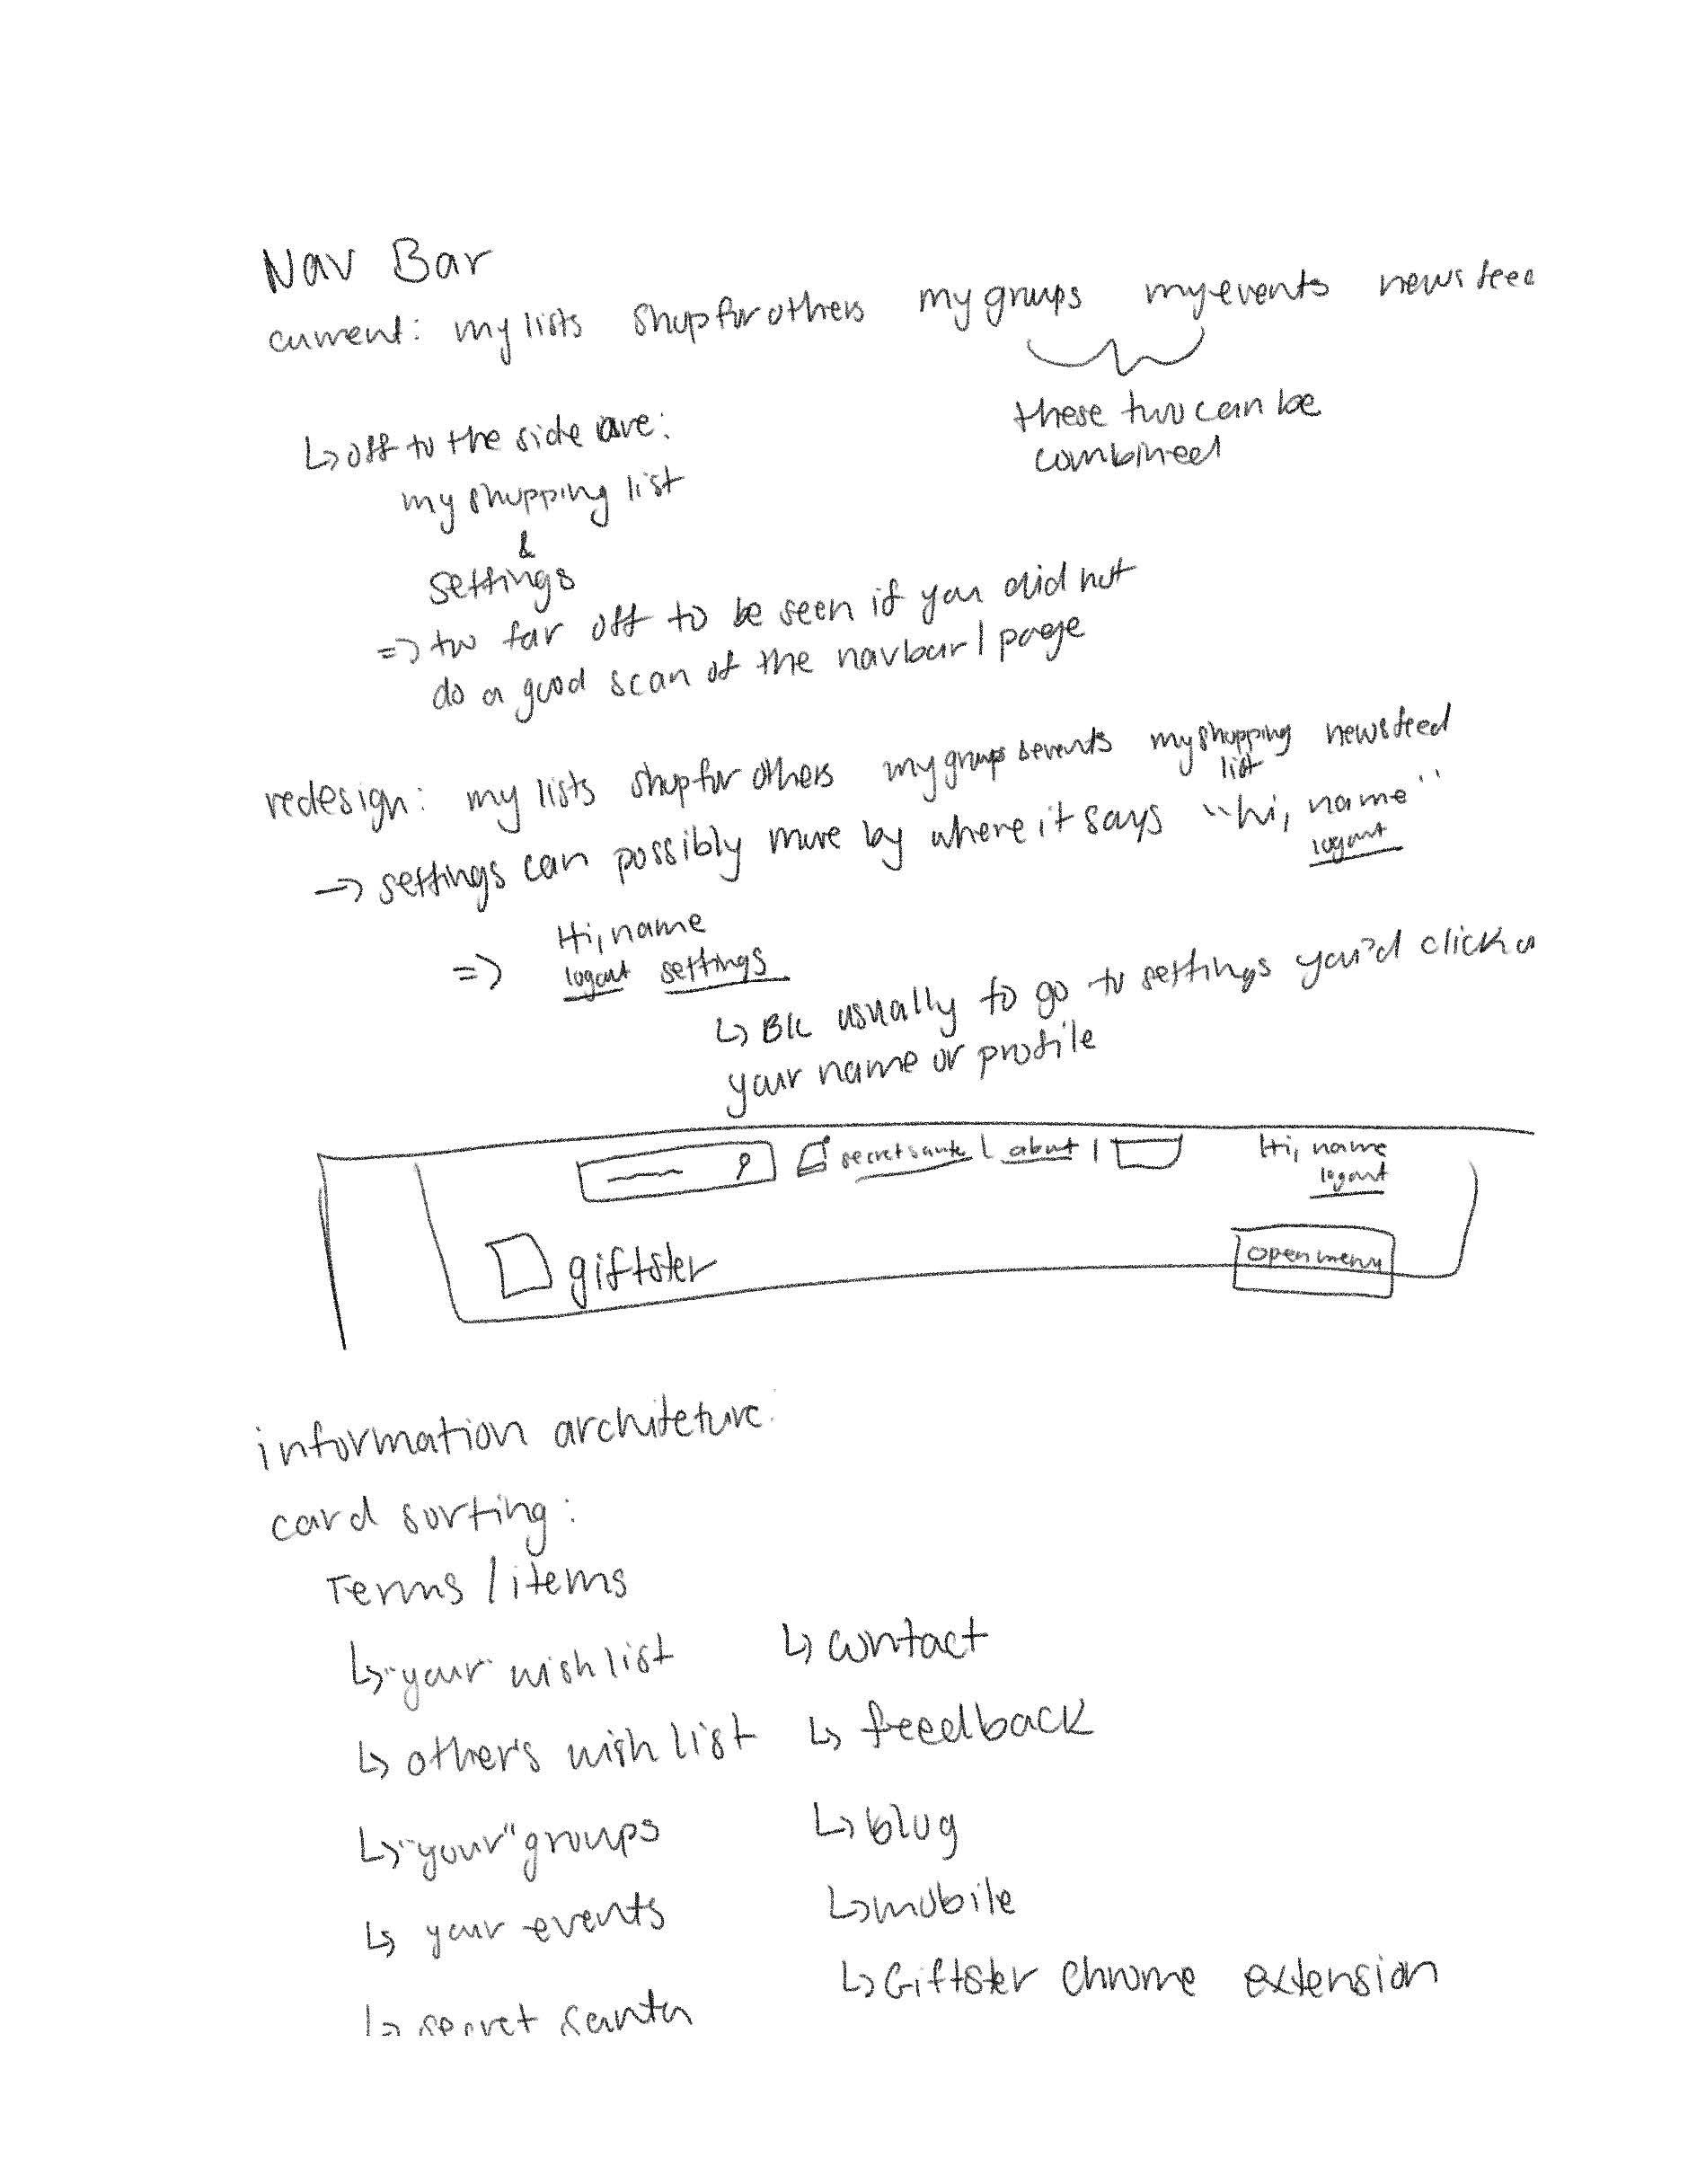 Nav Bar
current: my lists shop for others my groups my events newsfeed
these two can be
combined
↳ off to the side are:
my shopping list
&
settings
=> too far off to be seen if you did not
do a good scan of the navbar / page
redesign: my lists shop for others my groups & events my shopping list newsfeed
→ settings can possibly move by where it says "hi, name"
logout
=> Hi, name
logout settings
↳ Bc usually to go to settings you'd click
your name or profile
secret santa | about |
Hi, name
logout
giftster
open menu
information architeture:
card sorting:
Terms / items
↳ "your" wish list
↳ other's wish list
↳ "your" groups
↳ your events
↳ secret santa
↳ contact
↳ feedback
↳ blog
↳ mobile
↳ Giftster Chrome extension